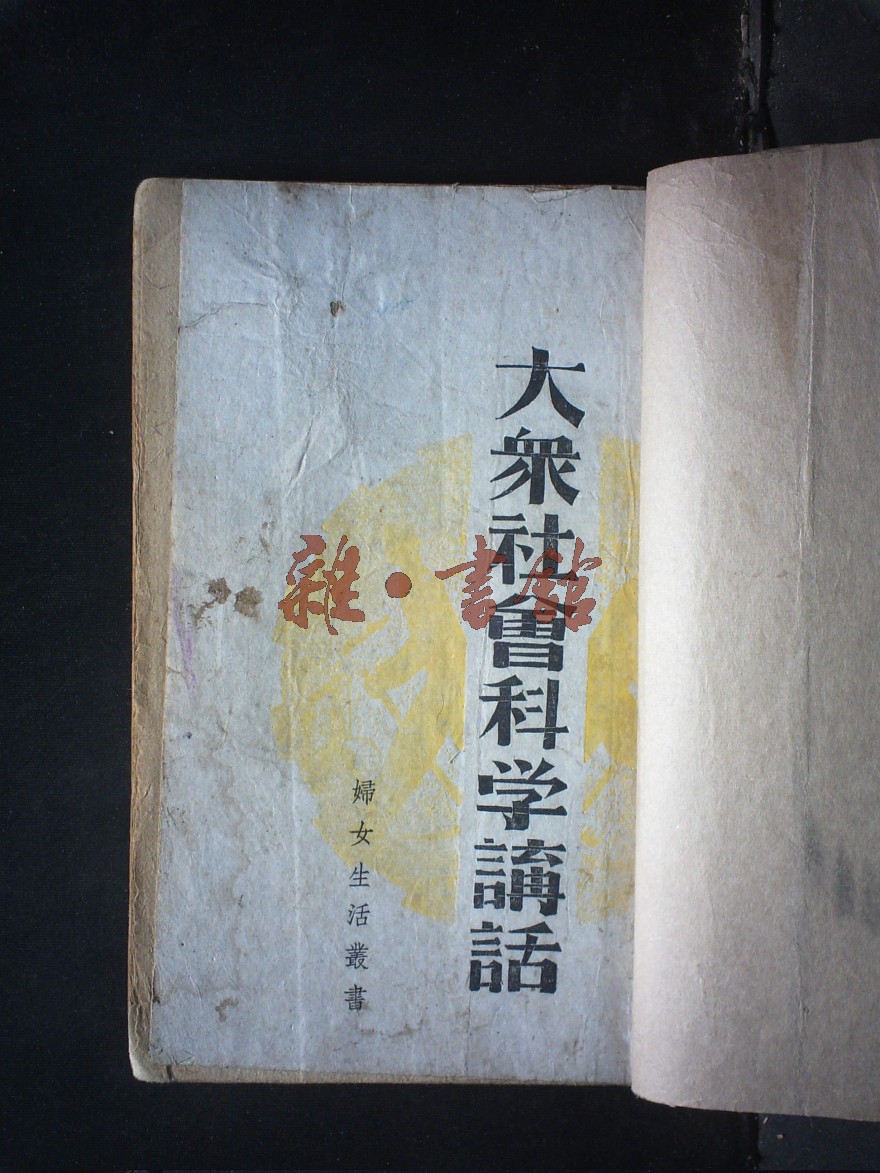 大衆社會科学講話
婦女生活叢書
雜·書館